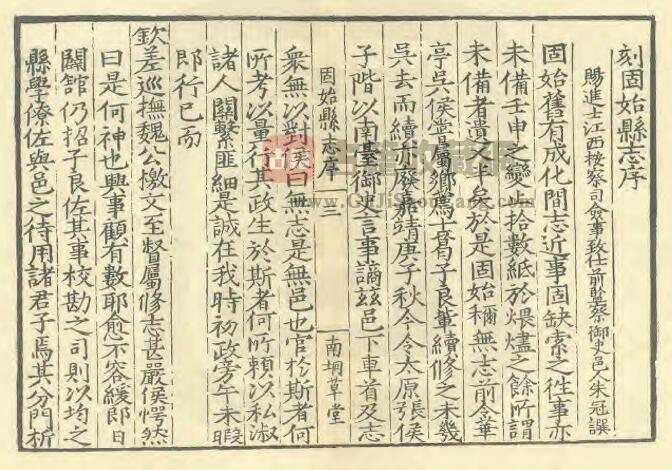 刻固始縣志序
賜進士江西按察司僉事致仕前監察御史邑人朱冠譔
固始舊有成化間志近事固缺索之往事亦
未備壬申之變止拾數紙於煨燼之餘所謂
未備者遺又半矣於是固始稱無志前令華
亭吳侯嘗屬鄉薦士葛子良輩續修之未幾
吳去而續亦廢嘉靖庚子秋今令太原張侯
子階以南臺御史言事謫茲邑下車首及志
固始縣志序
三
南坰草堂
衆無以對侯曰無志是無邑也官於斯者何
所考以量行其政生於斯者何所賴以私淑
諸人關繫匪細是誠在我時初政旁午未暇
即行已而
欽差巡撫魏公檄文至督屬修志甚嚴侯愕然
曰是何神也興事顧有數耶愈不容緩即日
闢館仍招子良佐其事校勘之司則以均之
縣學僚佐與邑之待用諸君子焉其分門析
古